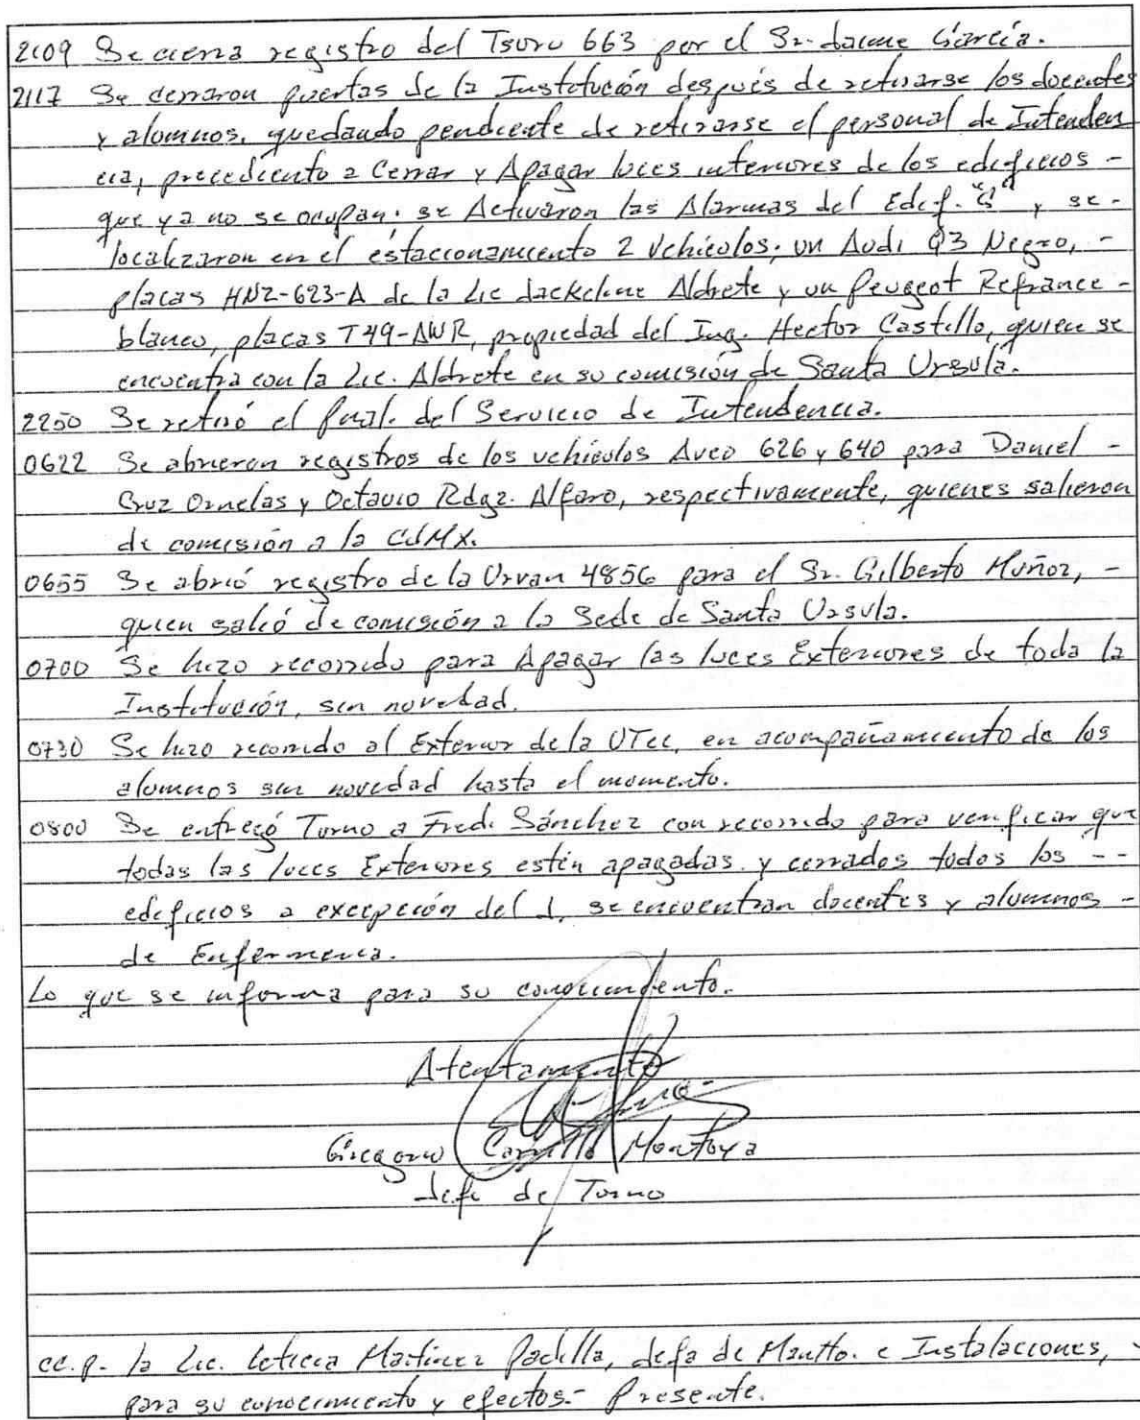 2109 Se cierra registro del Tsuru 663 por el Sr. Jaime García.
2117 Se cerraron puertas de la Institución después de retirarse los docentes
y alumnos, quedando pendiente de retirarse el personal de Intenden
cia, procediento a Cerrar y Apagar luces interiores de los edificios -
que ya no se ocupan; se Activaron las Alarmas del Edif. "G", y se -
localizaron en el estacionamiento 2 vehículos; un Audi Q3 Negro, -
placas HNZ-623-A de la Lic Jackeline Aldrete y un Peugeot Refrance -
blanco, placas T49-AWR, propiedad del Ing. Hector Castillo, quien se
encuentra con la Lic. Aldrete en su comisión de Santa Ursula.
2250 Se retiró el pnal. del Servicio de Intendencia.
0622 Se abrieron registros de los vehículos Aveo 626 y 640 para Daniel -
Cruz Ornelas y Octavio Rdgz. Alfaro, respectivamente, quienes salieron
de comisión a la CdMX.
0655 Se abrió registro de la Urvan 4856 para el Sr. Gilberto Muñoz, -
quien salió de comisión a la Sede de Santa Ursula.
0700 Se hizo recorrido para Apagar las luces Exteriores de toda la
Institución, sin novedad.
0730 Se hizo recorrido al Exterior de la UTec, en acompañamiento de los
alumnos sin novedad hasta el momento.
0800 Se entregó Turno a Fredi Sánchez con recorrido para verificar que
todas las luces Exteriores estén apagadas y cerrados todos los --
edificios a excepción del J, se encuentran docentes y alumnos -
de Enfermería.
Lo que se informa para su conocimiento.
Atentamente
Gregorio Carrillo Montoya
Jefe de Turno
cc.p- la Lic. Leticia Martinez Padilla, Jefa de Mantto. e Instalaciones, -
para su conocimiento y efectos.- Presente.